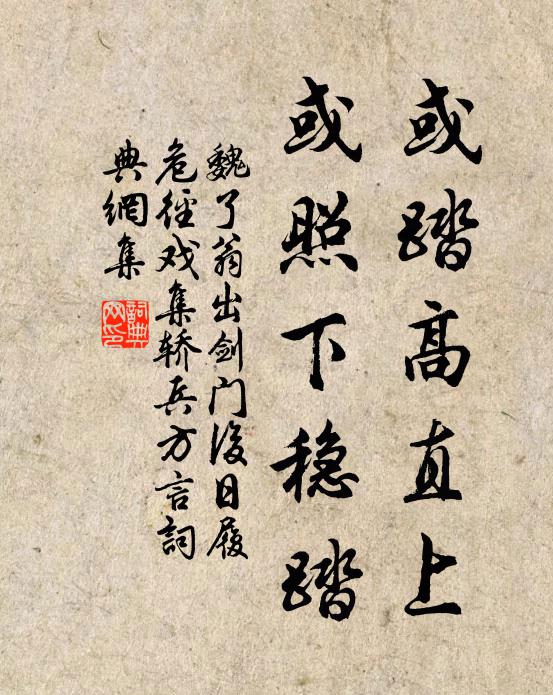 或踏高直上
或照下稳踏
魏了翁出剑门後日履
危徑戏集轿兵方言詞
典網集
詞典
网印